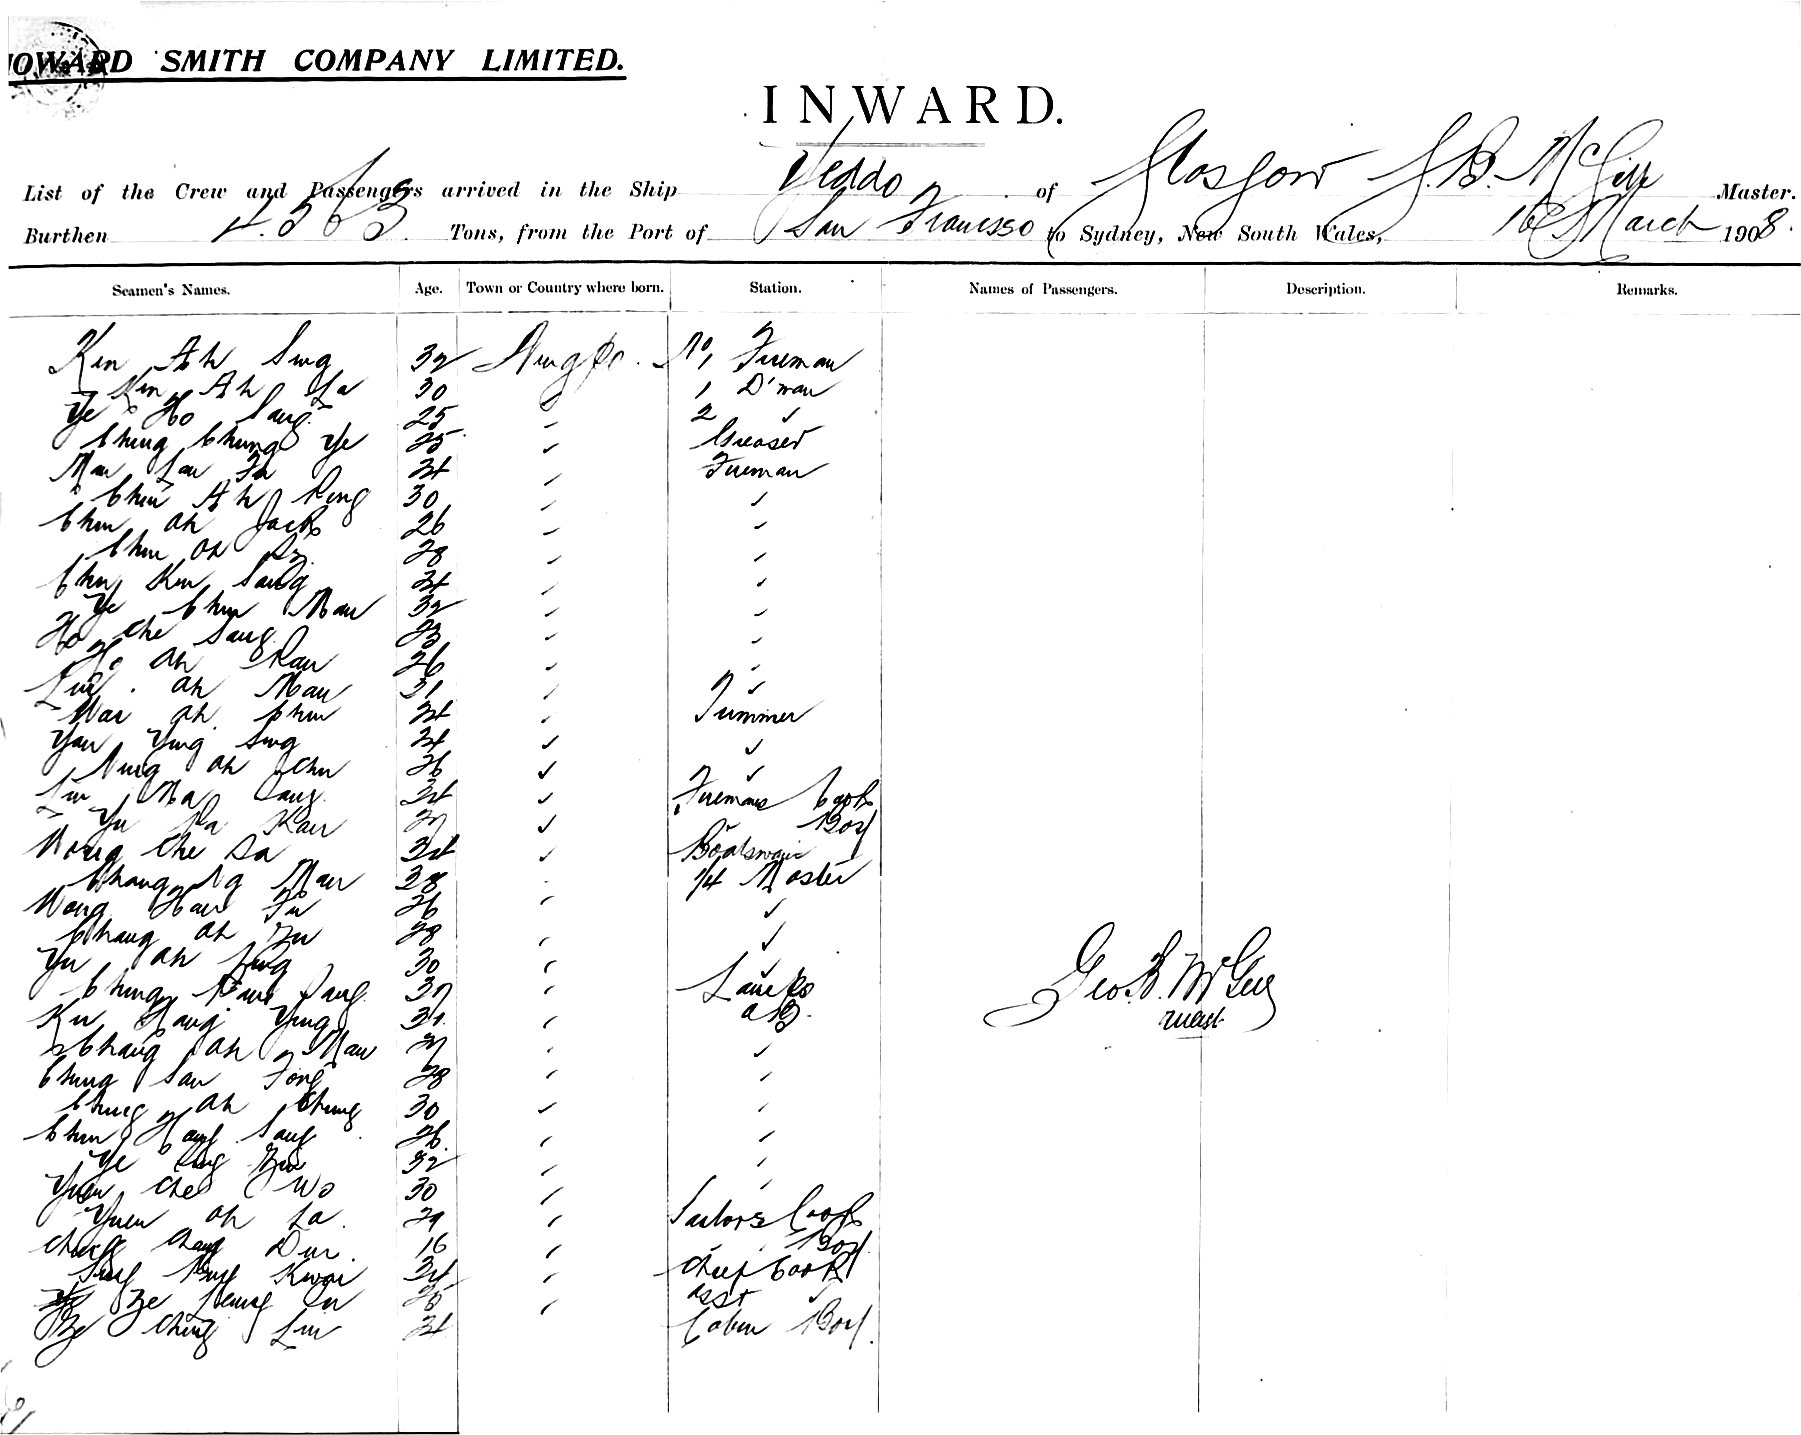 HOWARD SMITH COMPANY LIMITED.
INWARD.
List of the Crew and Passengers arrived in the Ship Yeddo of Glasgow G. B. McGill Master.
Burthen 4563. Tons, from the Port of San Francisco to Sydney, New South Wales, 16 March 1908.
Seamen's Names. Age. Town or Country where born. Station. Names of Passengers. Description. Remarks.
Kin Ah Sing 32 Ningpo. No 1 Fireman
Kin Ah La 30 1 D'man
Ye Ho Sang 25 2 ✓
Ching Chung Ye 25 Greaser
Man Lau Fa 24 Fireman
Chin Ah Pong 30
Chin ah Jack 26
Chin ah 28
Chin Kin Sang 24
Ye Chin Man 32
Ho Che Sang 23
Ho ah Pau 26
Lin ah Mau 31
Wai ah Chin 24 Trimmer
Yan Ying Sing 24
Ning ah Chu 26
Lin Na Sang 34 Firemans Cook
Yu Na Kan 27 Boy
Wong Che Sa 34 Boatswain
Chang Ng Mau 38 1/4 Master
Wong Hau Fu 26
Chang ah Zu 28
Yu ah Ling 30
Ching Pau Sang 37 Lamps
Ku Hang Ying 34 a B.
Chang ah Mau 27
Ching San Fong 28
Ching ah Chung 30
Chin Hang Sang 26
Ye Zu 32
Yuen Che Wo 30
Yuen ah La 29 Sailors Cook
Chang Dui 16 Boy
Kwai 34 Chief Cook
Ze 25 asst ✓
Ze Ching Lin 24 Cabin Boy.
Geo. B. McGill
mast